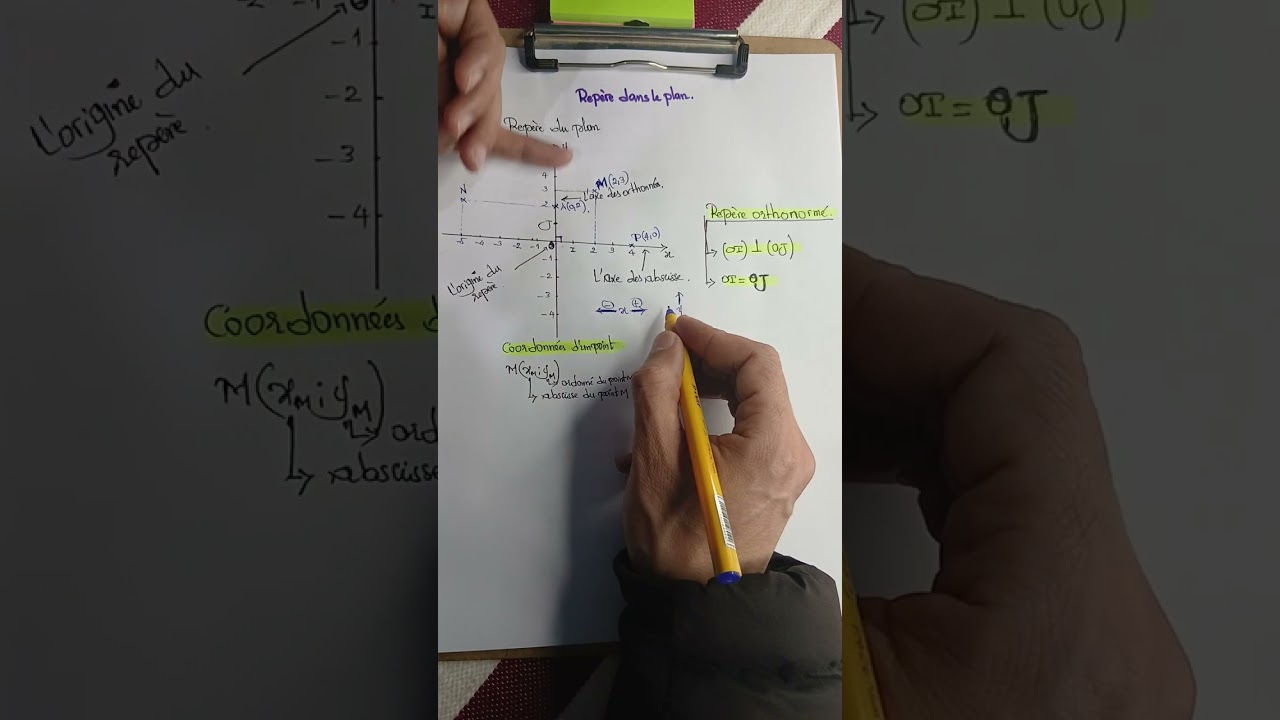 Repère dans le plan.
Repère du plan
y
4
3
M(2,3)
L'axe des orthonnés.
N
2
A(0,2).
J
P(4,0)
-5 -4 -3 -2 -1 0 1 2 3 4 x
-1
-2
-3
-4
L'origine du
repère.
L'axe des abscisse.
(-) x (+)
y
Repère orthonormé.
(OI) ⊥ (OJ)
OI = OJ
Coordonnées d'un point
M(xM; yM)
ordonné du point M
abscisse du point M